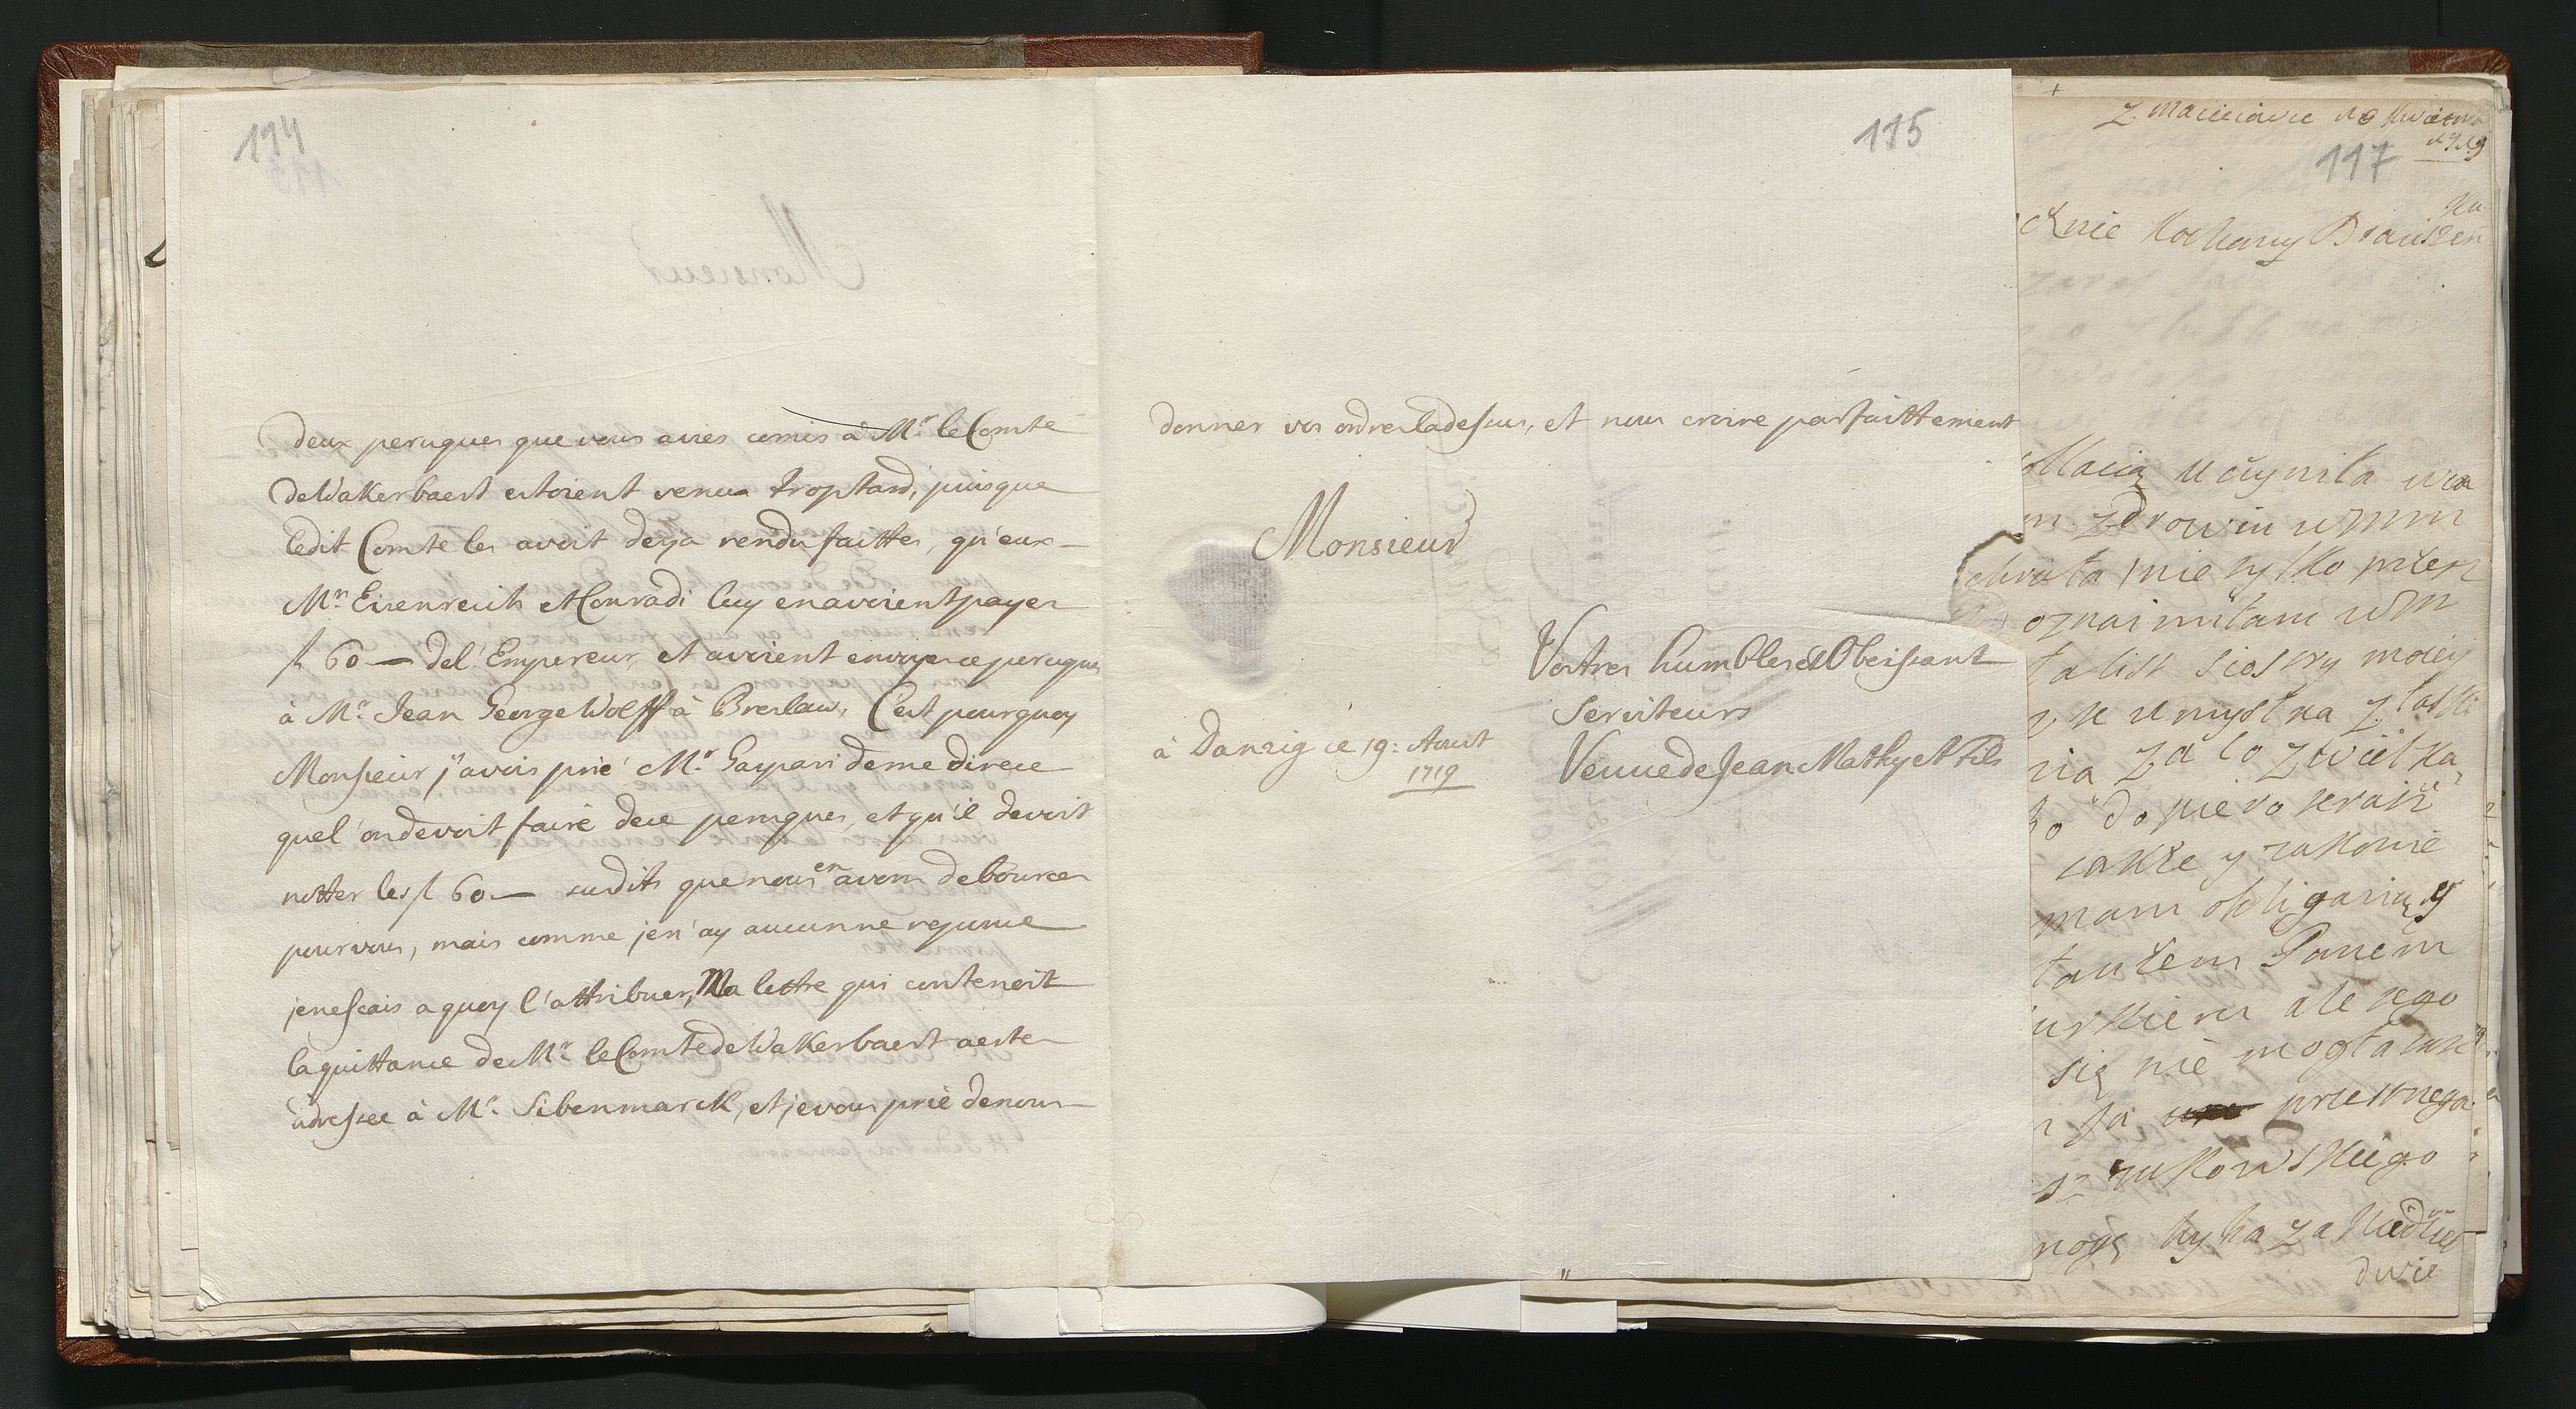 114
deux peruques que vous avies comis à Mr. le Comte
de Wakerbaert estoient venus trop tard, puisque
ledit Comte les avoit deja rendu faittes, qu'eux
Mrs. Eisenreich et Conradi luy en avoient payer
fl 60 — de l'Empereur, et avoient envoyer ce peruques
à Mr. Jean George Wolff à Breslau, C'est pourquoy
Monsieur j'avois prié Mr. Gaspari de me direce
quel'on devoit faire dece peruques, et qu'il devoit
notter les fl 60. — sudits que nous en avons debourcer
pour vous, mais comme je n'ay aucunne reponce
je ne scais a quoy l'attribuer, Ma lettre qui contenoit
la quittance de Mr. le Comte de Wakerbaert a ester
adressee à Mr. Sibenmarck, et je vous prie de nous
115
donner vos ordres ladessus, et nous croire parfaittement
Monsieur
Vostres humbles et Obeissant
Serviteurs
Veuve de Jean Mathy et Fils
à Danzig ce 19: Aoust
1719
117
cznie kochany Brauszen
uczyniła
zdrowiu wmm
nie tylko
oznaimiłam wm
list siostry moiey
umyslna z łaski
za to z wielka
do piero
także y
mam obligacią y
Panem
ale iego
się nie mogła
ia
zukowskiego
mogę za
dwie